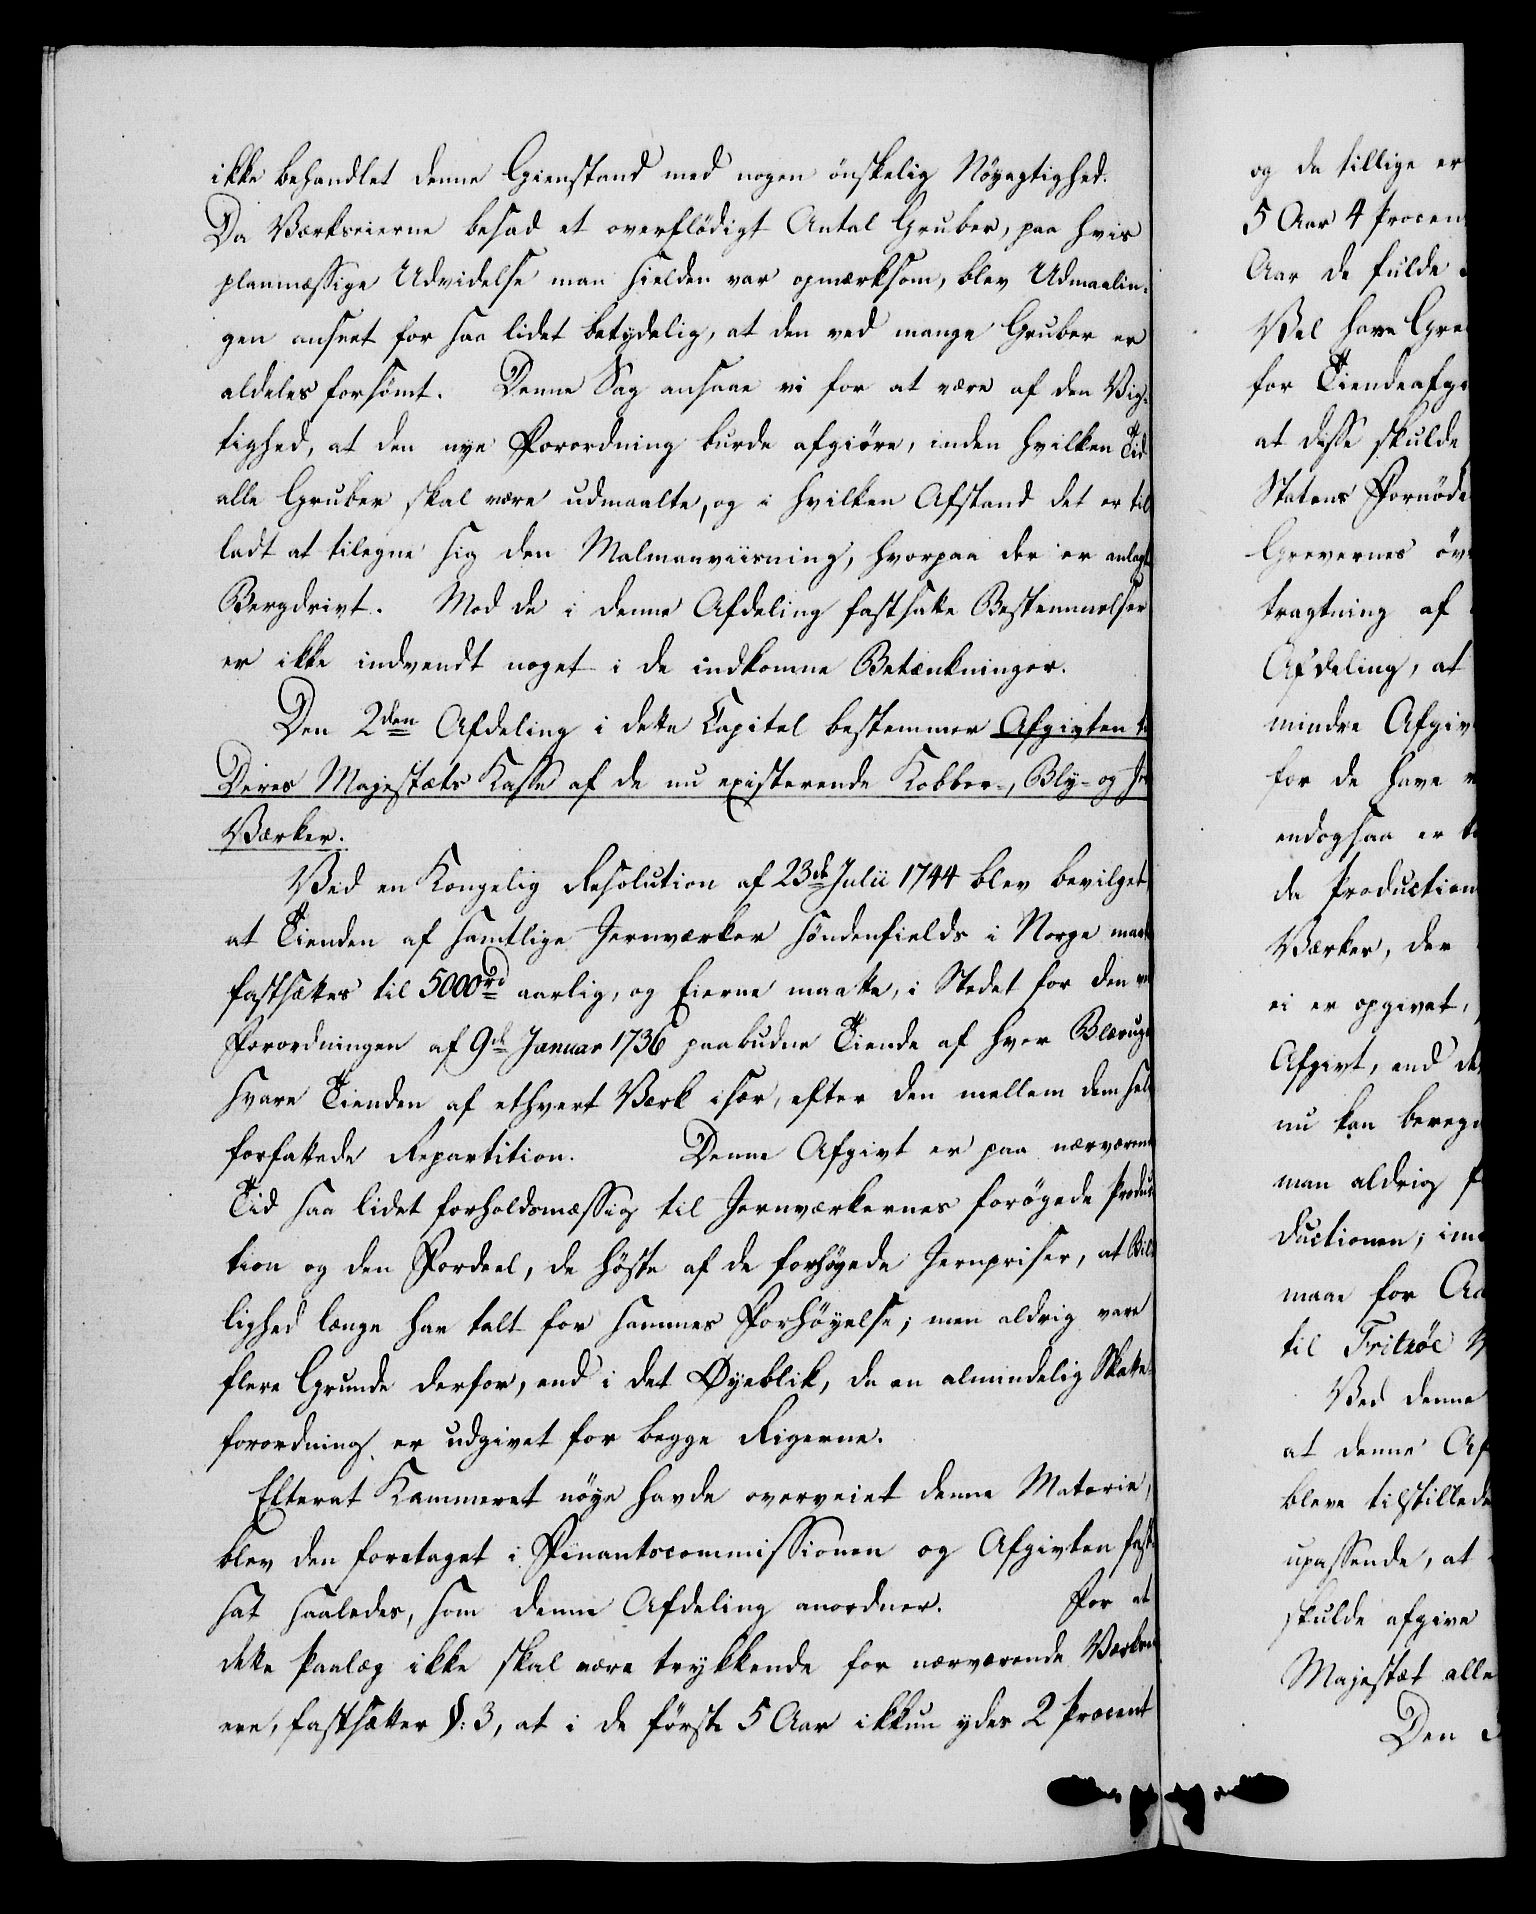 ikke behandlet denne Gienstand med nogen önskelig Nöyagtighed.
Da Værkseierne besad et overflödigt Antal Gruber, paa hvis
planmæssige Udvidelse man sielden var opmærksom, blev Udmaalin-
gen anseet for saa lidet betydelig, at den ved mange Gruber er
aldeles forsömt. Denne Sag ansaae vi for at være af den Vig-
tighed, at den nye Forordning burde afgiöre, inden hvilken Tid
alle Gruber skal være udmaalte, og i hvilken Afstand det er til
ladt at tilegne sig den Malmanviisning, hvorpaa der er anlagt
Bergdrivt. Mod de i denne Afdeling fastsatte Bestemmelser
er ikke indvendt noget i de indkomne Betænkninger.
Den 2den Afdeling i dette Capitel bestemmer Afgivten t
Deres Majestæts Kasse af de nu existerende Kobber-, Bly- og J
Værker.
Ved en Kongelig Resolution af 23de Julii 1744 blev bevilget
at Tienden af samtlige Jernværker söndenfields i Norge maat
fastsættes til 5000rd aarlig, og Eierne maatte, i Stedet for den v
Forordningen af 9de Januar 1736 paabudne Tiende af hver Blæruge
svare Tienden af ethvert Værk især, efter den mellem dem selv
forfattede Repartition. Denne Afgivt er paa nærværend
Tid saa lidet forholdsmæssig til Jernværkernes forögede Produc
tion og den Fordeel, de höste af de forhöyede Jernpriser, at Bil
lighed længe har talt for sammes Forhöyelse; men aldrig vare
flere Grunde derfor, end i det Øyeblik, da en almindelig Skatte-
forordning er udgivet for begge Rigerne.
Efterat Kammeret nöye havde overveiet denne Materie,
blev den foretaget i Finantscommissionen og Afgivten fast
sat saaledes, som denne Afdeling anordner. For at
dette Paalæg ikke skal være trykkende for nærværende Værkei
ere, fastsætter §: 3, at i de förste 5 Aar ikkun ydes 2 Procent
og da tillige er
5 Aar 4 Procen
Aar de fulde
Vel have Gre
for Tiendeafgi
at desse skulde
Statens Fornöde
Grevernes öv
tragtning af
Afdeling, at
mindre Afgiv
for de have
endogsaa er
da Production
Værker, der
ei er opgivet,
Afgivt, end de
nu kan bereg
man aldrig f
ductionen; im
maae for Aa
til Fritzöe
Ved denne
at denne Af
bleve tilstillede
upassende, at
skulde afgive
Majestæt alle
Den